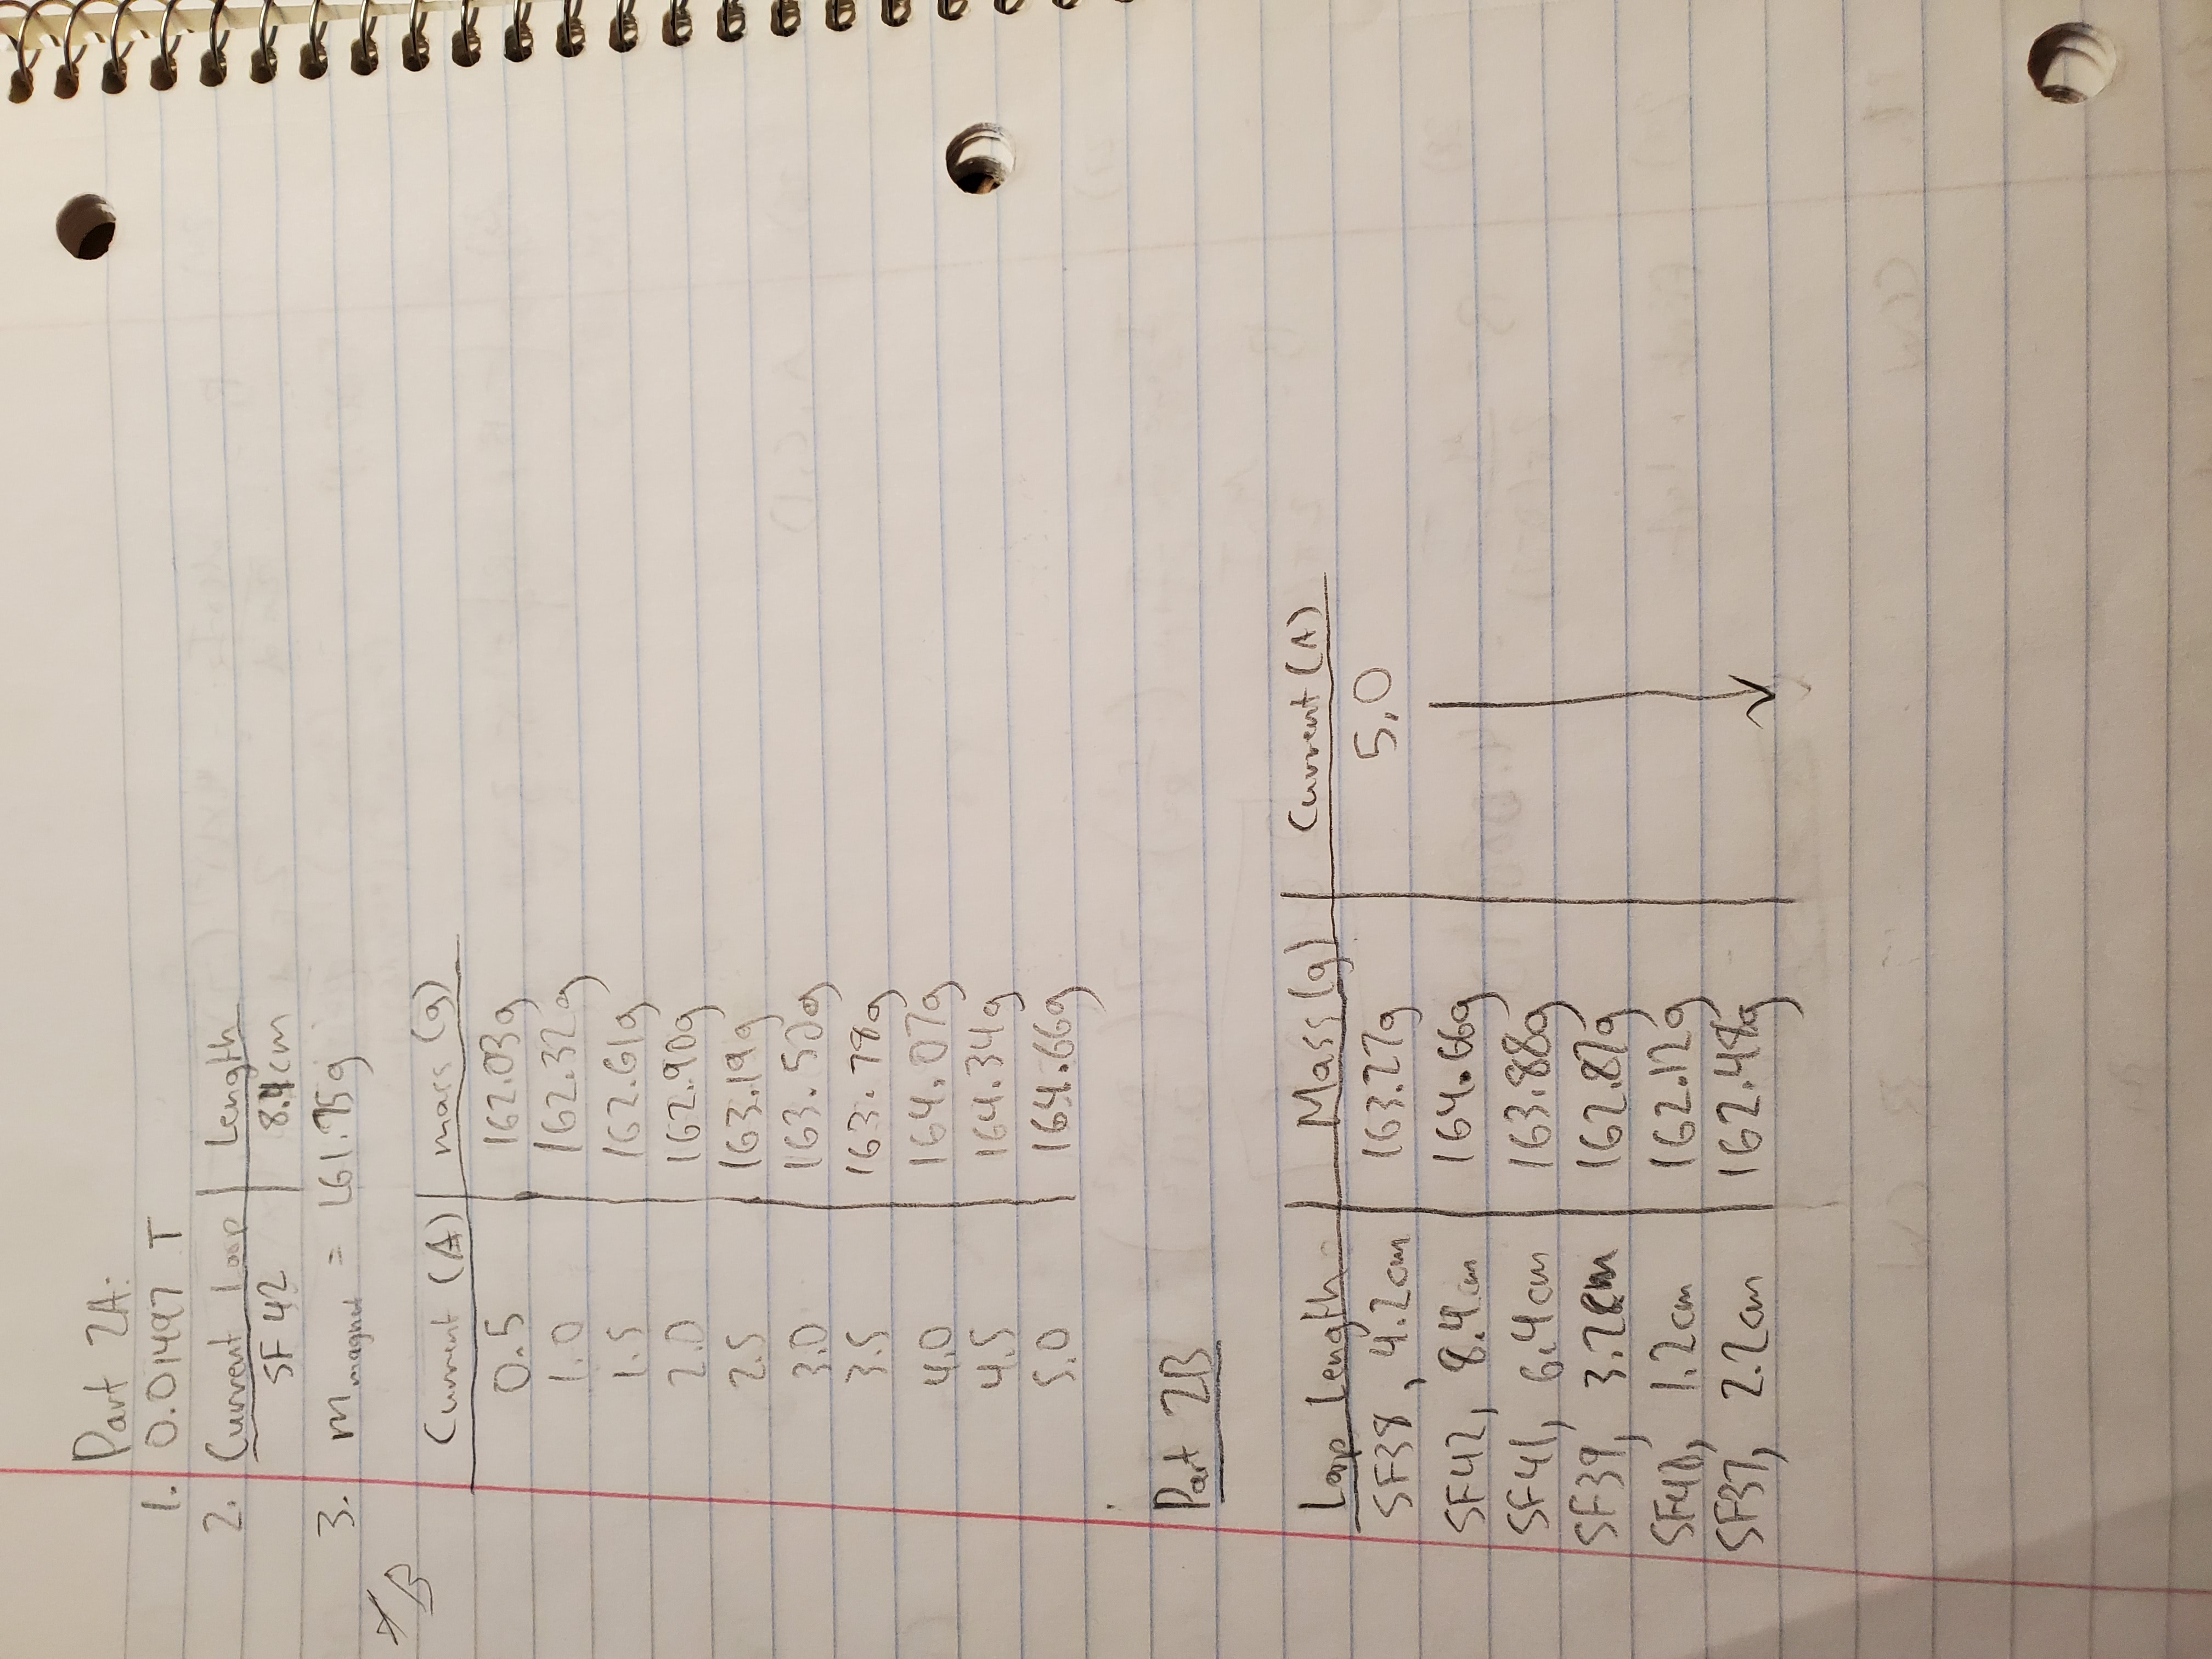 Part 2A:
1. 0.01497 T
2. Current Loop | Length
SF 42 | 8.4cm
3. m magnet = 161.75g
Current (A) | mass (g)
0.5 | 162.03g
1.0 | 162.32g
1.5 | 162.61g
2.0 | 162.90g
2.5 | 163.19g
3.0 | 163.50g
3.5 | 163.78g
4.0 | 164.07g
4.5 | 164.34g
5.0 | 164.66g
Part 2B
Loop Length | Mass (g) | Current (A)
SF38, 4.2cm | 163.27g | 5.0
SF42, 8.4cm | 164.66g
SF41, 6.4cm | 163.88g
SF39, 3.2cm | 162.87g
SF40, 1.2cm | 162.12g
SF37, 2.2cm | 162.48g